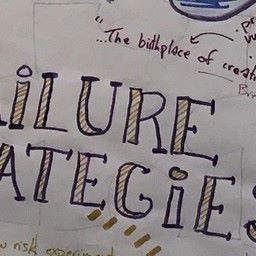 "...The birthplace of creat
AiLURE
ATEGiES
w risk experiment